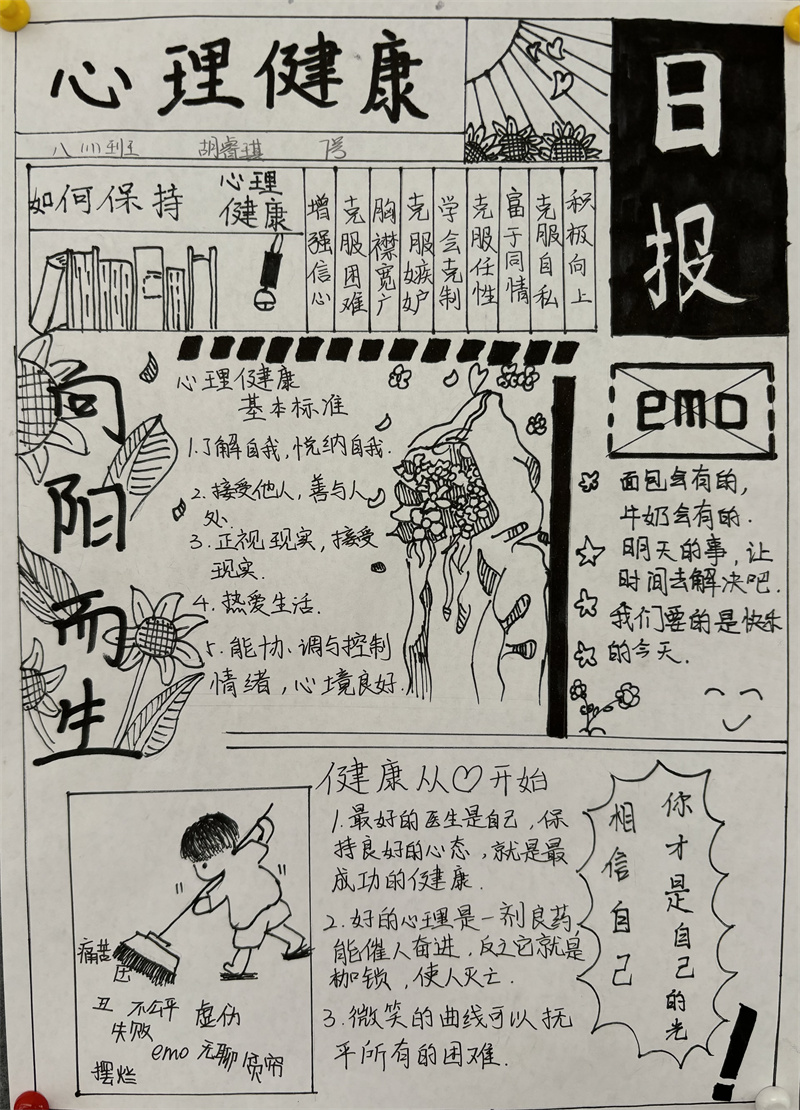 心理健康
日报
八(1)班 胡睿琪 7号
如何保持心理
健康
增强信心
克服困难
胸襟宽广
克服嫉妒
学会克制
克服任性
富于同情
克服自私
积极向上
向阳而生
心理健康
基本标准
1.了解自我,悦纳自我.
2.接受他人,善与人
处.
3.正视现实,接受
现实.
4.热爱生活.
5.能协调与控制
情绪,心境良好.
emo
面包会有的,
牛奶会有的.
明天的事,让
时间去解决吧.
我们要的是快乐
的今天.
健康从♡开始
1.最好的医生是自己,保
持良好的心态,就是最
成功的健康.
2.好的心理是一剂良药,
能催人奋进,反之它就是
枷锁,使人灭亡.
3.微笑的曲线可以抚
平所有的困难.
你才是自己的光
相信自己
!
痛苦
丑 不公平 虚伪
失败
emo 无聊 贫穷
摆烂